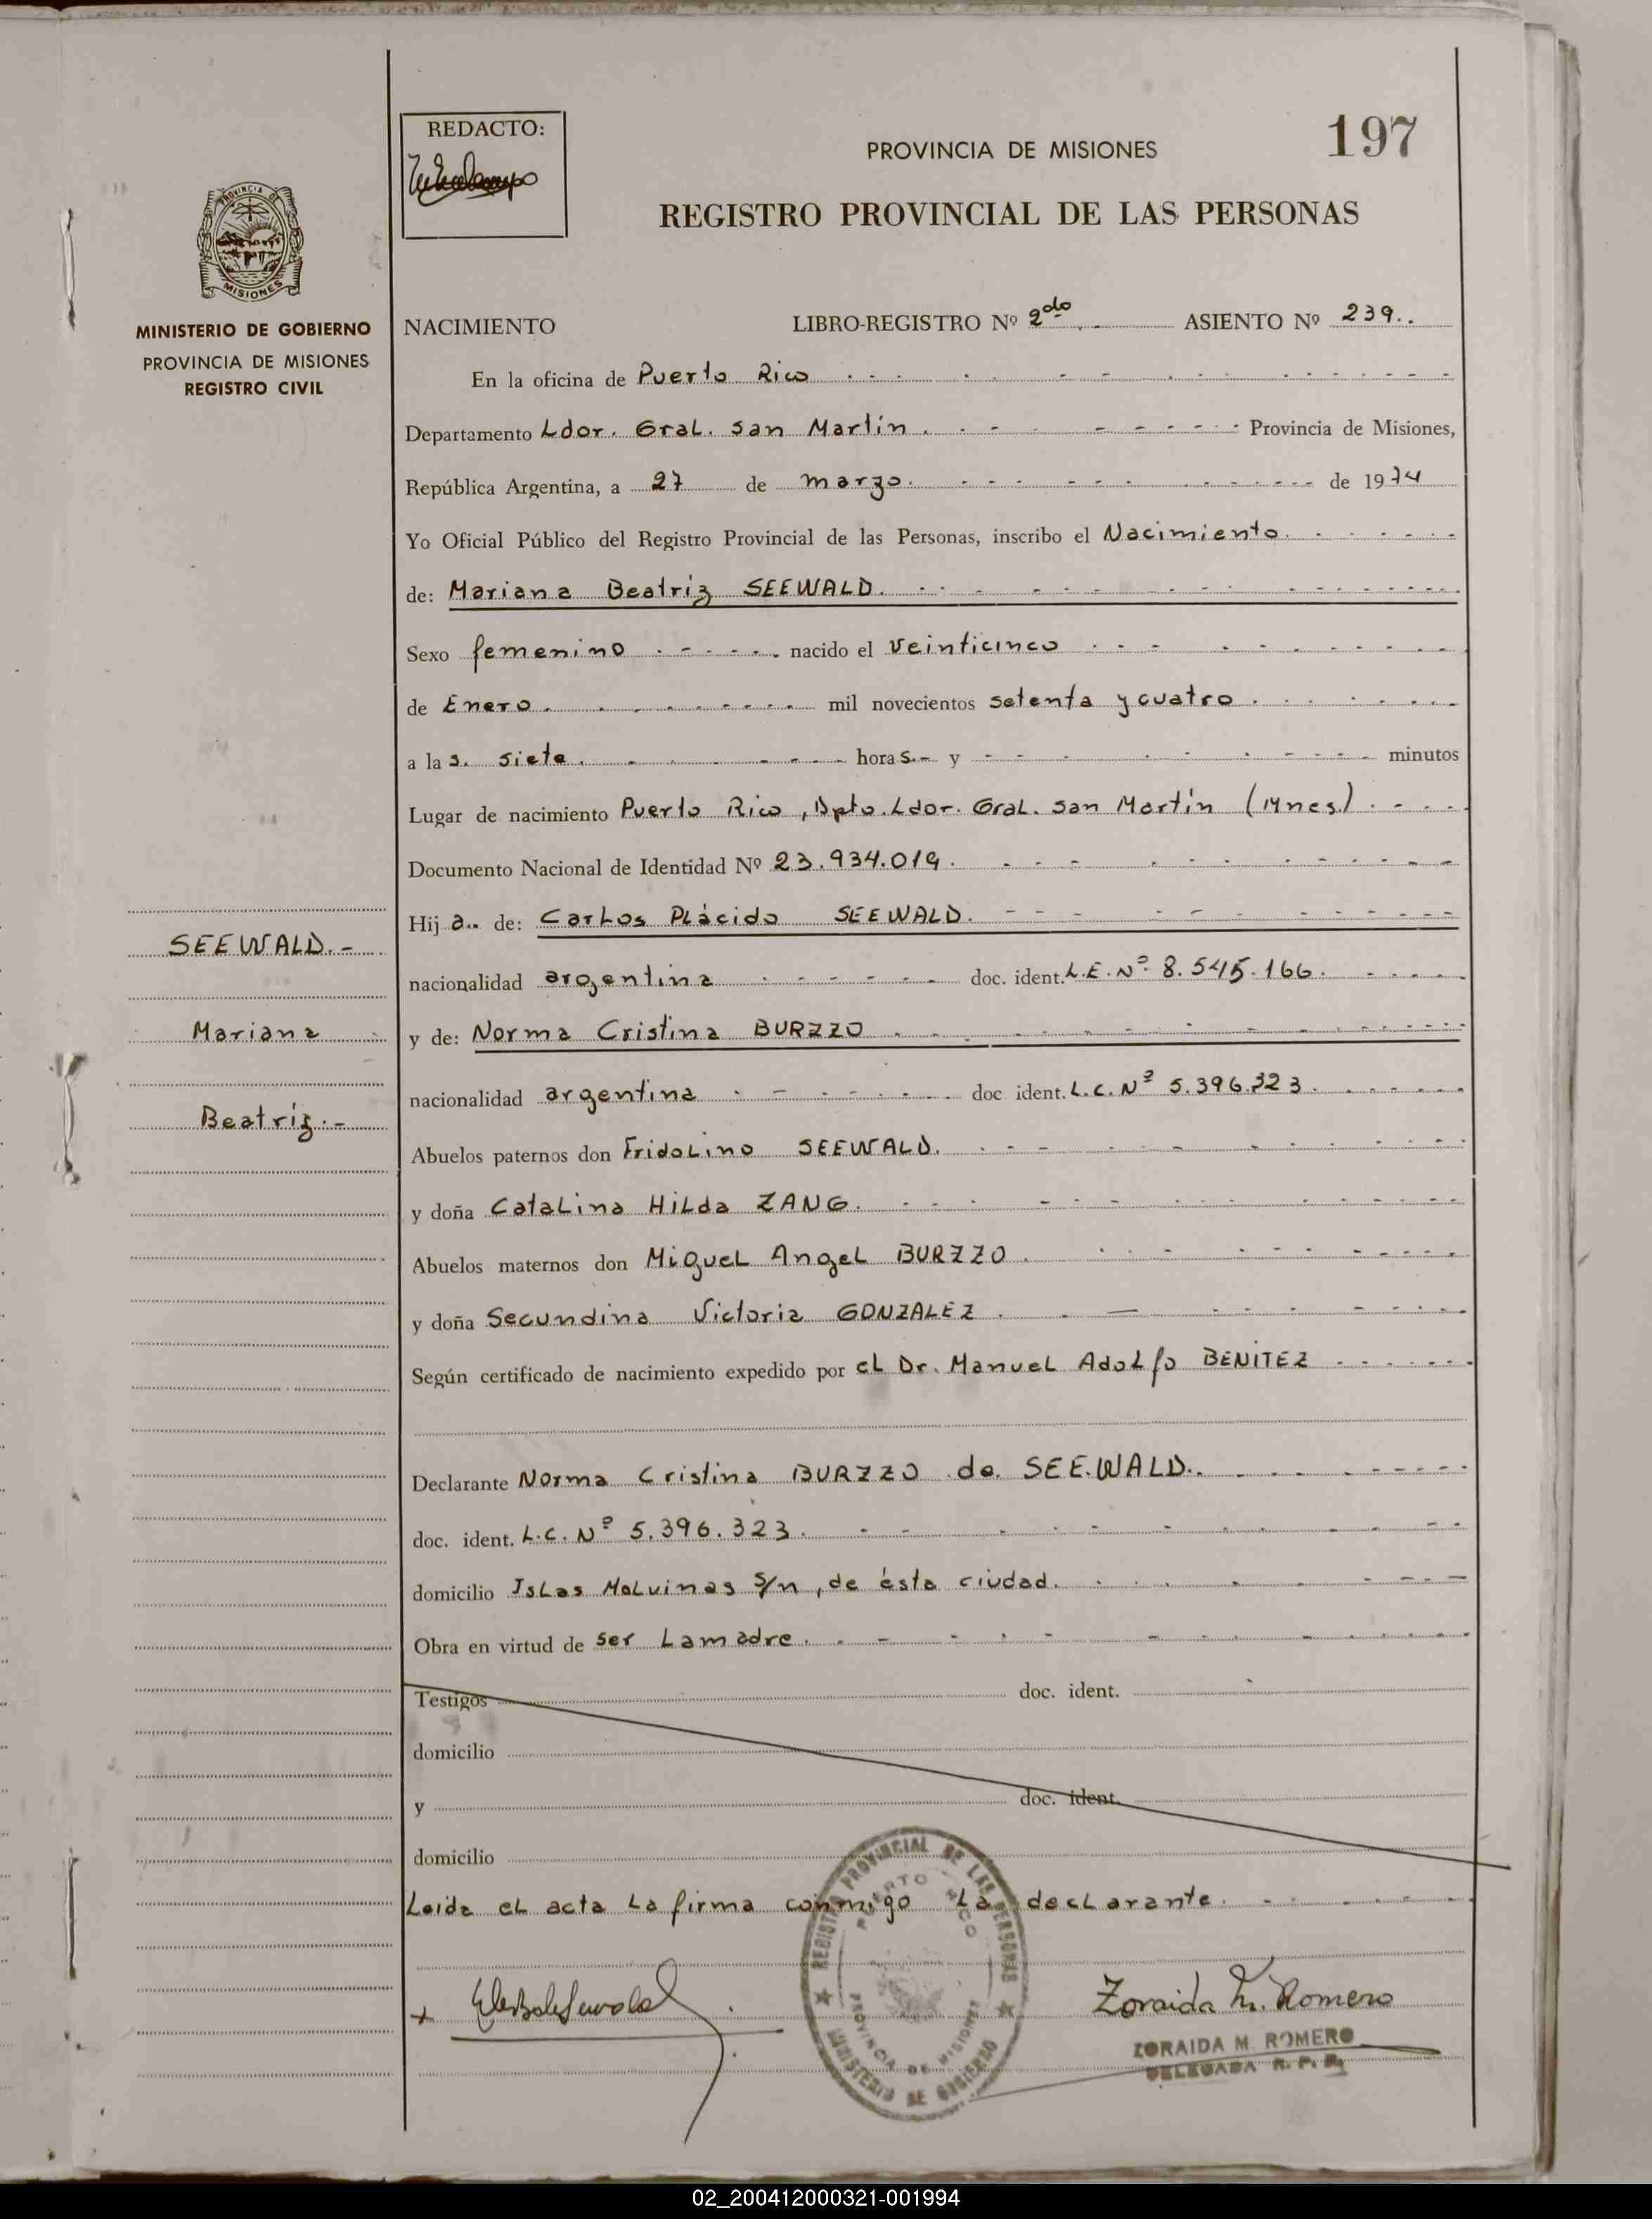 REDACTO:
197
PROVINCIA DE MISIONES
REGISTRO PROVINCIAL DE LAS PERSONAS
PROVINCIA DE
MISIONES
MINISTERIO DE GOBIERNO
PROVINCIA DE MISIONES
REGISTRO CIVIL
NACIMIENTO LIBRO-REGISTRO Nº 2do ASIENTO Nº 239..
En la oficina de Puerto Rico
Departamento Ldor. Gral. San Martín. Provincia de Misiones,
República Argentina, a 27 de marzo. de 1974
Yo Oficial Público del Registro Provincial de las Personas, inscribo el Nacimiento.
de: Mariana Beatriz SEEWALD.
Sexo femenino nacido el veinticinco
de Enero. mil novecientos setenta y cuatro.
a la s. siete. hora s.- y minutos
Lugar de nacimiento Puerto Rico, Dpto. Ldor. Gral. San Martín (Mnes.)
Documento Nacional de Identidad Nº 23.934.019.
Hij a.. de: Carlos Plácido SEEWALD.
SEEWALD.-
nacionalidad argentina doc. ident. L.E. Nº 8.545.166.
Mariana
y de: Norma Cristina BURZZO
nacionalidad argentina doc ident. L.C. Nº 5.396.323.
Beatriz.-
Abuelos paternos don Fridolino SEEWALD.
y doña Catalina Hilda ZANG.
Abuelos maternos don Miguel Angel BURZZO.
y doña Secundina Victoria GONZALEZ.
Según certificado de nacimiento expedido por el Dr. Manuel Adolfo BENITEZ
Declarante Norma Cristina BURZZO de SEEWALD..
doc. ident. L.C. Nº 5.396.323.
domicilio Islas Malvinas S/n, de ésta ciudad.
Obra en virtud de ser La madre.
Testigos doc. ident.
domicilio
y doc. ident.
domicilio
Leida el acta La firma conmigo La declarante.
REGISTRO PROVINCIAL DE LAS PERSONAS
PUERTO RICO
PROVINCIA DE MISIONES
MINISTERIO DE GOBIERNO
Zoraida M. Romero
ZORAIDA M. ROMERO
DELEGADA R. P. P.
02_200412000321-001994